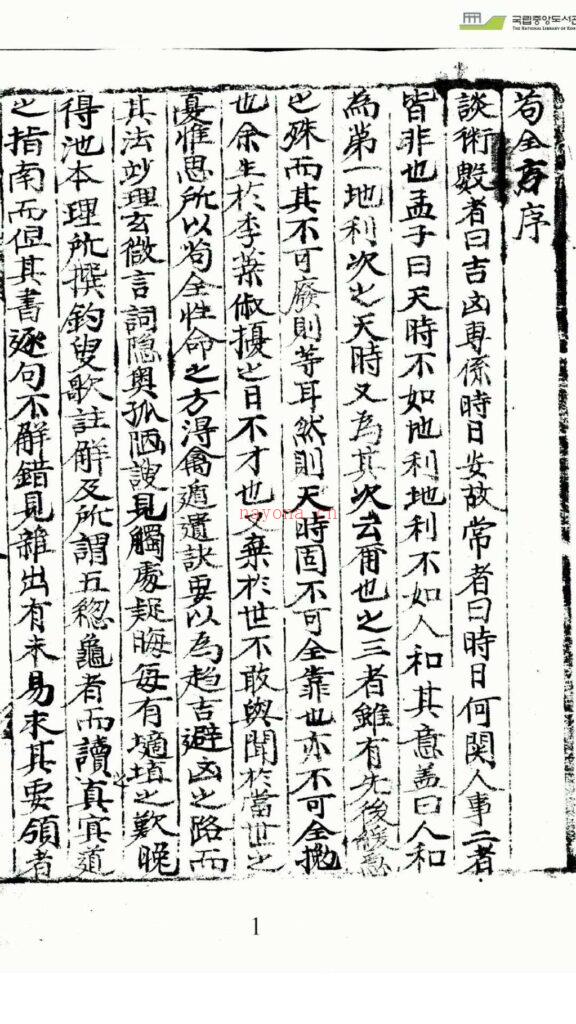 국립중앙도서관
THE NATIONAL LIBRARY OF KOREA
苟全方序
談術數者曰吉凶專係時日安故常者曰時日何関人事二者
皆非也孟子曰天時不如地利地利不如人和其意盖曰人和
為第一地利次之天時又為其次云爾也之三者雖有先後緩急
之殊而其不可廢則等耳然則天時固不可全靠也亦不可全抛
也余生於季葉俶擾之日不才也又棄於世不敢與聞於當世之
憂惟思所以苟全性命之方得禽遁遺訣要以為趍吉避凶之路而
其法玅理玄微言詞隐奥孤陋謏見觸處疑晦每有擿埴之歎晚
得池本理所撰釣叟歌註解及所謂五總龜者而讀之真冥道
之指南而但其書逐句不解錯見雜出有未易求其要領者
nayona.cn
1